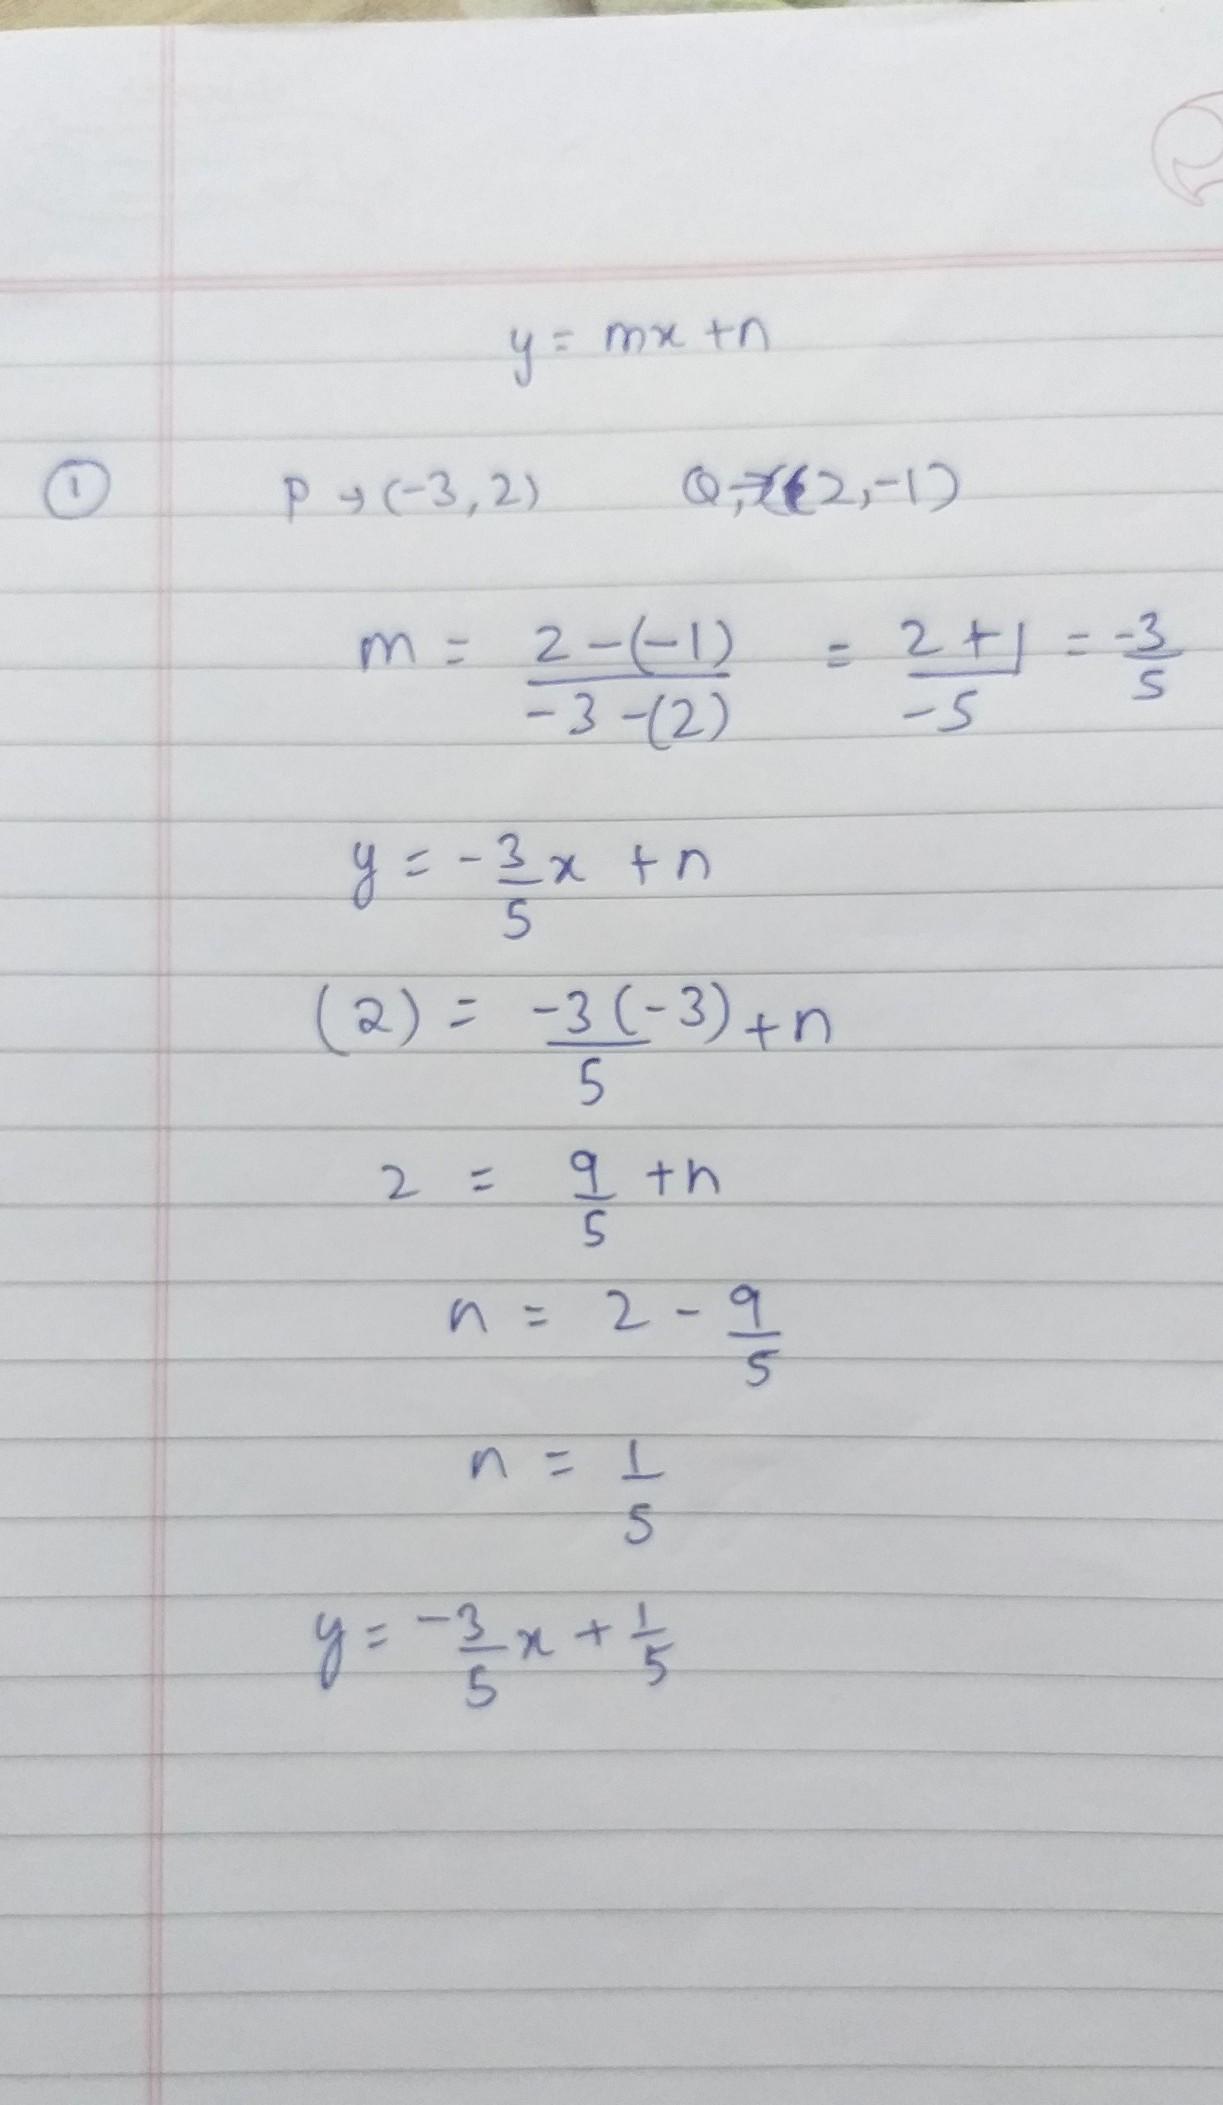 y = mx + n
① P → (-3, 2) Q → (2, -1)
m = 2 - (-1) / -3 - (2) = 2 + 1 / -5 = -3/5
y = -3/5 x + n
(2) = -3(-3)/5 + n
2 = 9/5 + n
n = 2 - 9/5
n = 1/5
y = -3/5 x + 1/5